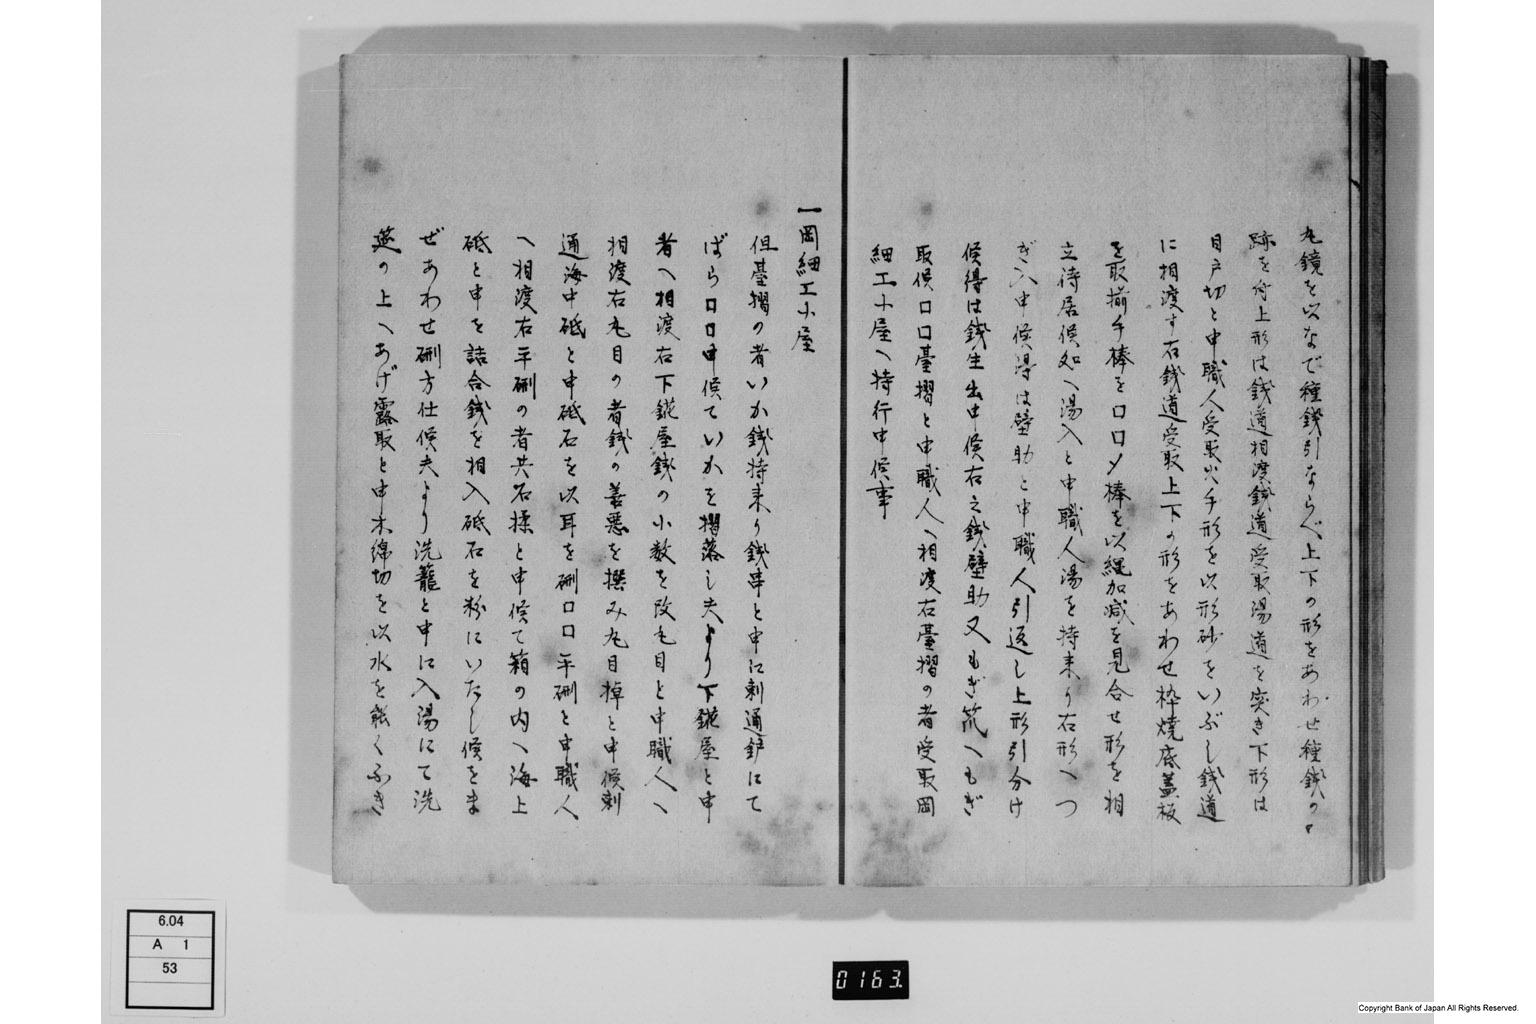 丸鏡を以なで種銭引ならべ上下の形をあわせ種銭の口
跡を付上形は銭道相渡銭道受取湯道を突き下形は
目戸切と申職人受取火手形を以形砂をいぶし銭道
に相渡す右銭道受取上下の形をあわせ枠焼底蓋板
を取揃手棒を口口〆棒を以縄加減を見合せ形を相
立待居候処へ湯入と申職人湯を持来り右形へつ
ぎ入申候得は壁助と申職人引返し上形引分け
候得は銭生出申候右之銭壁助又もぎ笊へもぎ
取候口口臺摺と申職人へ相渡右臺摺の者受取岡
細工小屋へ持行申候事
一岡細工小屋
但臺摺の者いか銭持来り銭串と申に刺通鈩にて
ばら口口申候ていかを摺落し夫より下鑢屋と申
者へ相渡右下鑢屋銭の小数を改丸目と申職人へ
相渡右丸目の者銭の善悪を撰み丸目掉と申候刺
通海中砥と申砥石を以耳を硎口口平硎と申職人
へ相渡右平硎の者共石揉と申候て箱の内へ海上
砥と申を詰合銭を相入砥石を粉にいたし候をま
ぜあわせ硎方仕候夫より洗籠と申に入湯にて洗
莚の上へあげ露取と申木綿切を以水を能くふき
6.04
A 1
53
0163.
Copyright Bank of Japan All Rights Reserved.